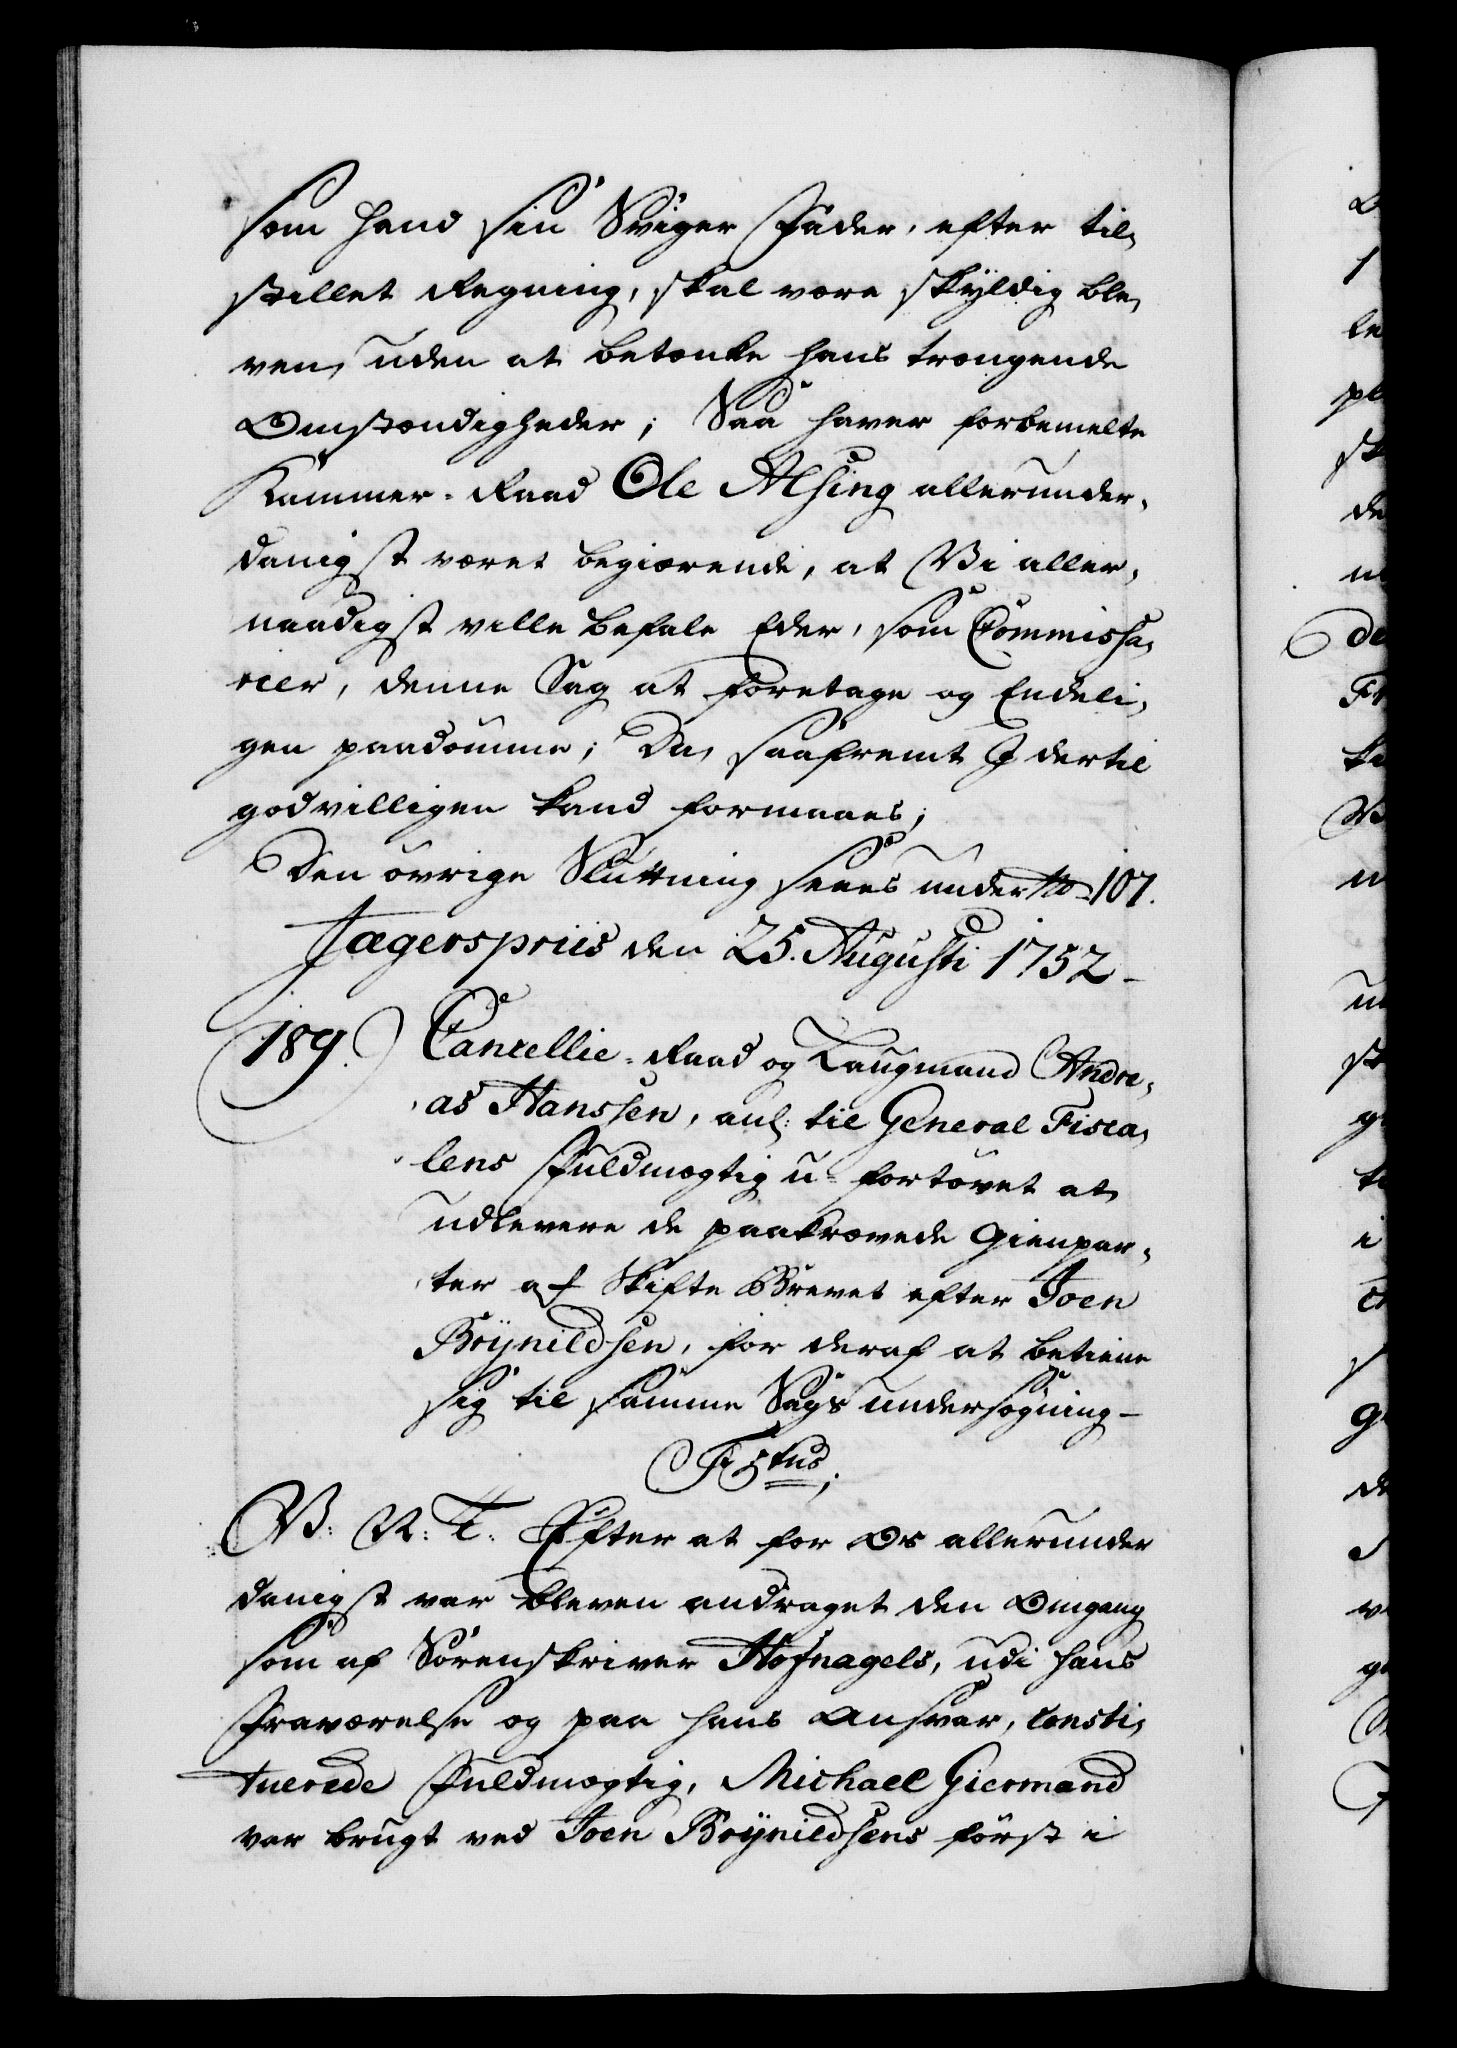 som hand sin Sviger Fader, efter til,
stillet Regning, skal være skÿldig ble,
ven, uden at betænke hans trængende
Omstændigheder; Saa haver forbemelte
Kammer-Raad Ole Alsing allerunder,
danigst været begiærende, at Vi aller,
naadigst ville befale Eder, som Commissa,
rier, denne Sag at foretage og Endeli,
gen paadømme; Da, saafremt I dertil
godvilligen kand formaaes;
Den øvrige Slutning sees under No 107.
Jægersprüs den 25. Augusti 1752-
189. Cancellie-Raad og Laugmand Andre,
as Hanssen, anl: til General Fisca,
lens Fuldmægtig u-fortøvet at
udlevere de paakrævede Gienpar,
ter af Skifte Brevet efter Joen
Brÿnildsen, for deraf at betiene
sig til samme Sags undersøgning-
F5tus;
V: N: T: Efter at for Os allerunder
danigst var bleven andraget den Omgang
som af Sorenskriver Hofnagels, udi hans
Fraværelse og paa hans Ansvar, consti,
tuerede Fuldmægtig, Michael Giermand
var brugt ved Joen Brÿnildsens først i